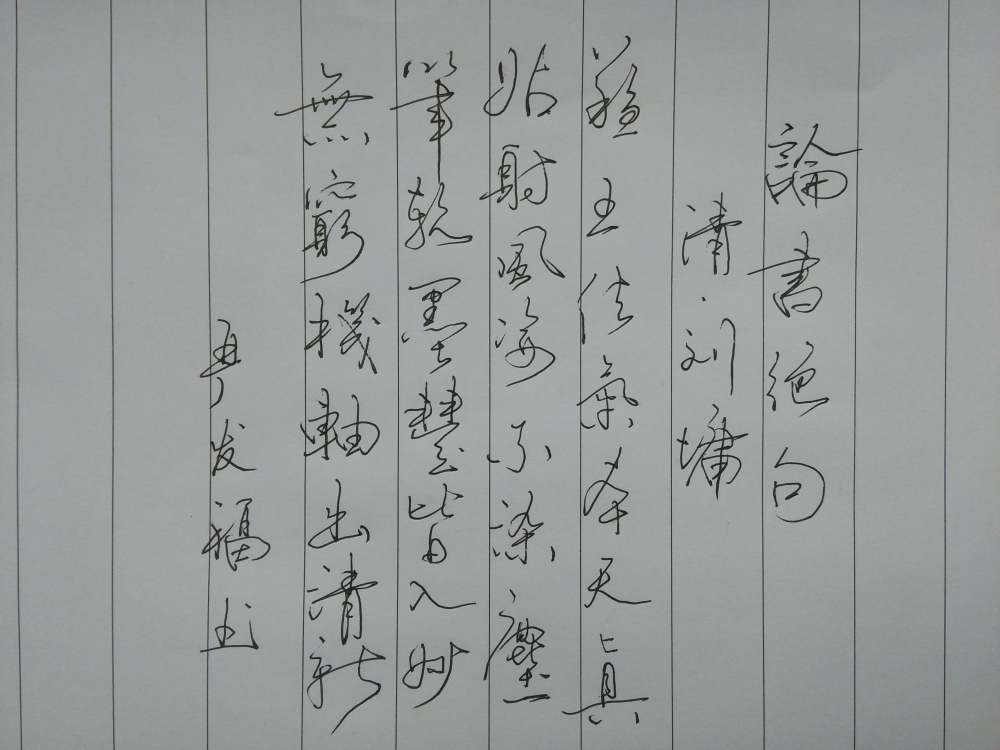 論書絕句
清·刘墉
蘓王佳氣本天真
姑射風姿不染塵
筆軟墨豐皆入妙
無窮機軸出清新
发福书